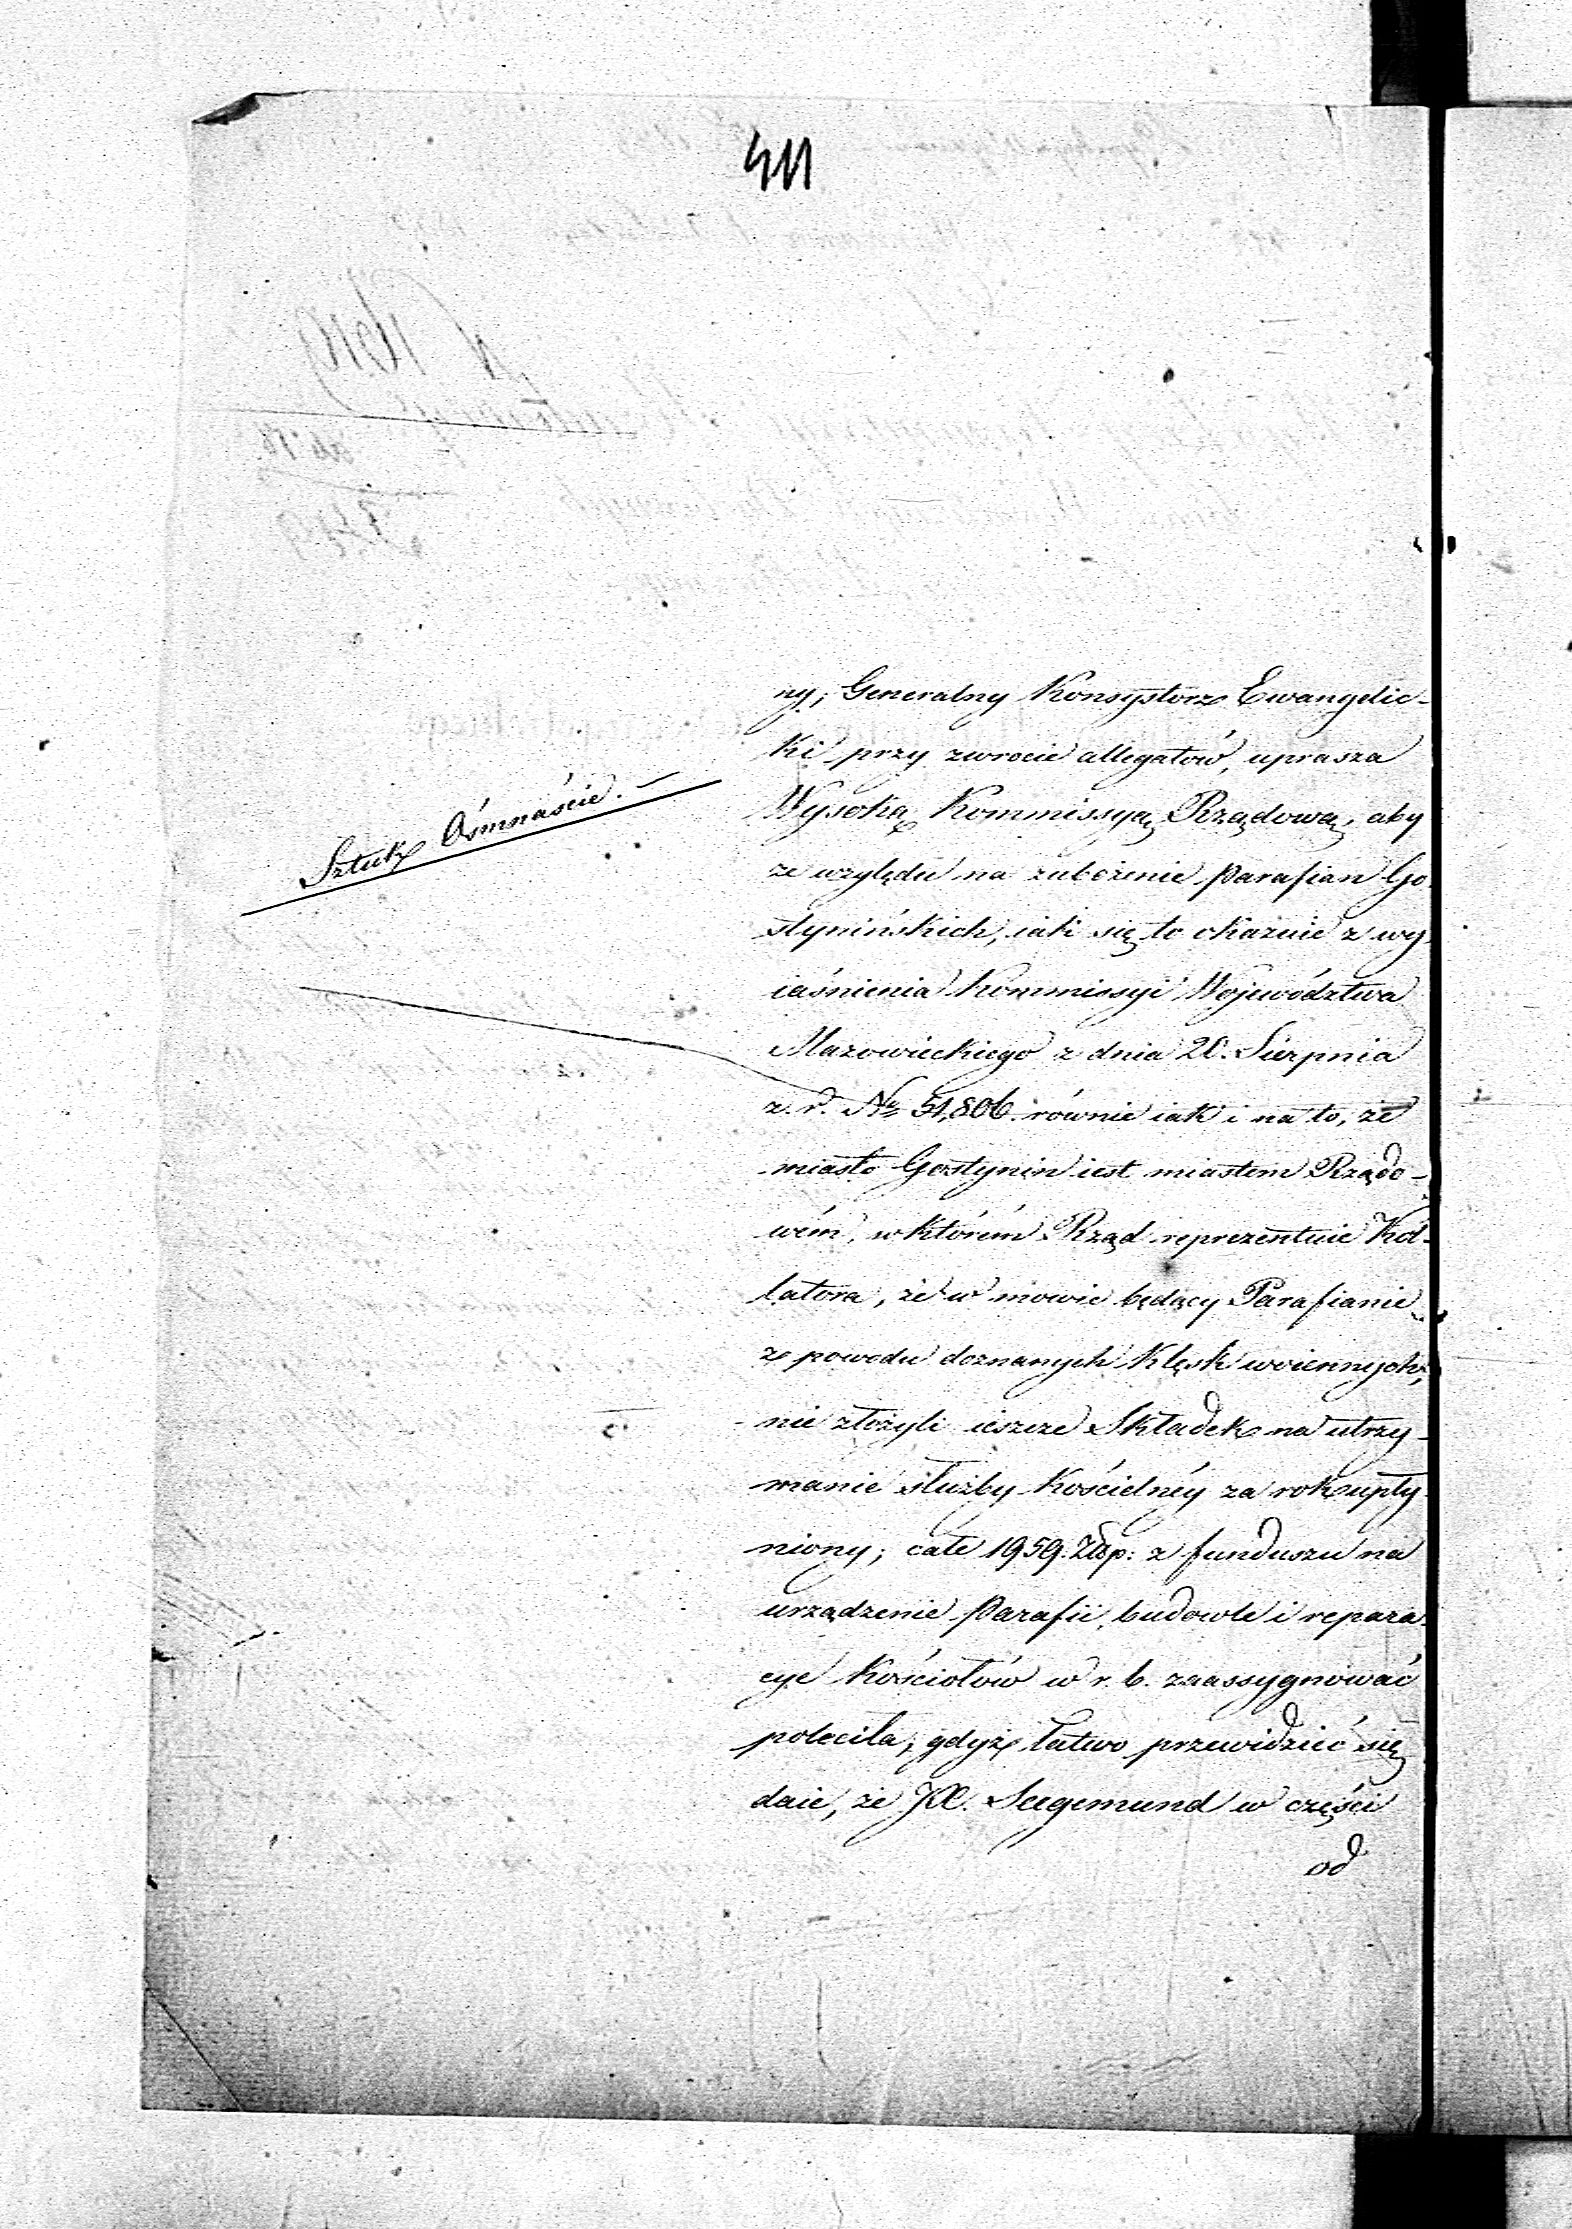 411
ny; Generalny Konsystorz Ewangelic-
ki przy zwrocie allegatów, uprasza
Sztuk Ośmnaście.
Wysoką Kommissyą Rządową, aby
ze względu na zubożenie Parafian Go-
stynińskich, iak się to okazuie z wy-
iaśnienia Kommissyi Województwa
Mazowieckiego z dnia 20. Sierpnia
z. r. No 51,806. równie iak i na to, że
miasto Gostynin iest miastem Rządo-
wém, w którém Rząd reprezentuie Kol-
latora, że w mowie będący Parafianie
z powodu doznanych klęsk woiennych,
nie złożyli ieszcze Składek na utrzy-
manie służby Kościelnéy za rok upły-
niony; całe 1959. Złp: z funduszu na
urządzenie Parafii, budowle i repara-
cye Kościołów w r. b. zaassygnować
poleciła; gdyż łatwo przewidzieć się
daie, że JX. Seegemund w części
od